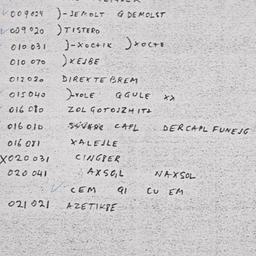 009024 )-JEMOLT G DEMOLST
009020 )TISTERO
010031 )-XOCTIK )XOCTE
010070 )XEJBE
012020 DIREXTE BREM
015040 )-VOLE GGULE XX
016080 ZOLGOTOJZHITZ
016010 CAPL DERCAPL FUNEJG
016081 XALEJLE
X020031 CINGBER
020041 AXSOL NAXSOL
CEM QI CU EM
021021 AZETIKBE